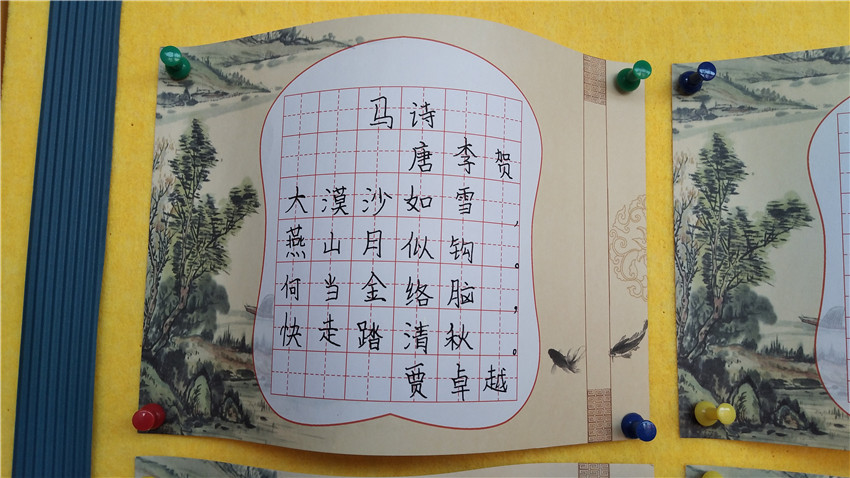 马诗
唐 李贺
大漠沙如雪，
燕山月似钩。
何当金络脑，
快走踏清秋。
贾卓越